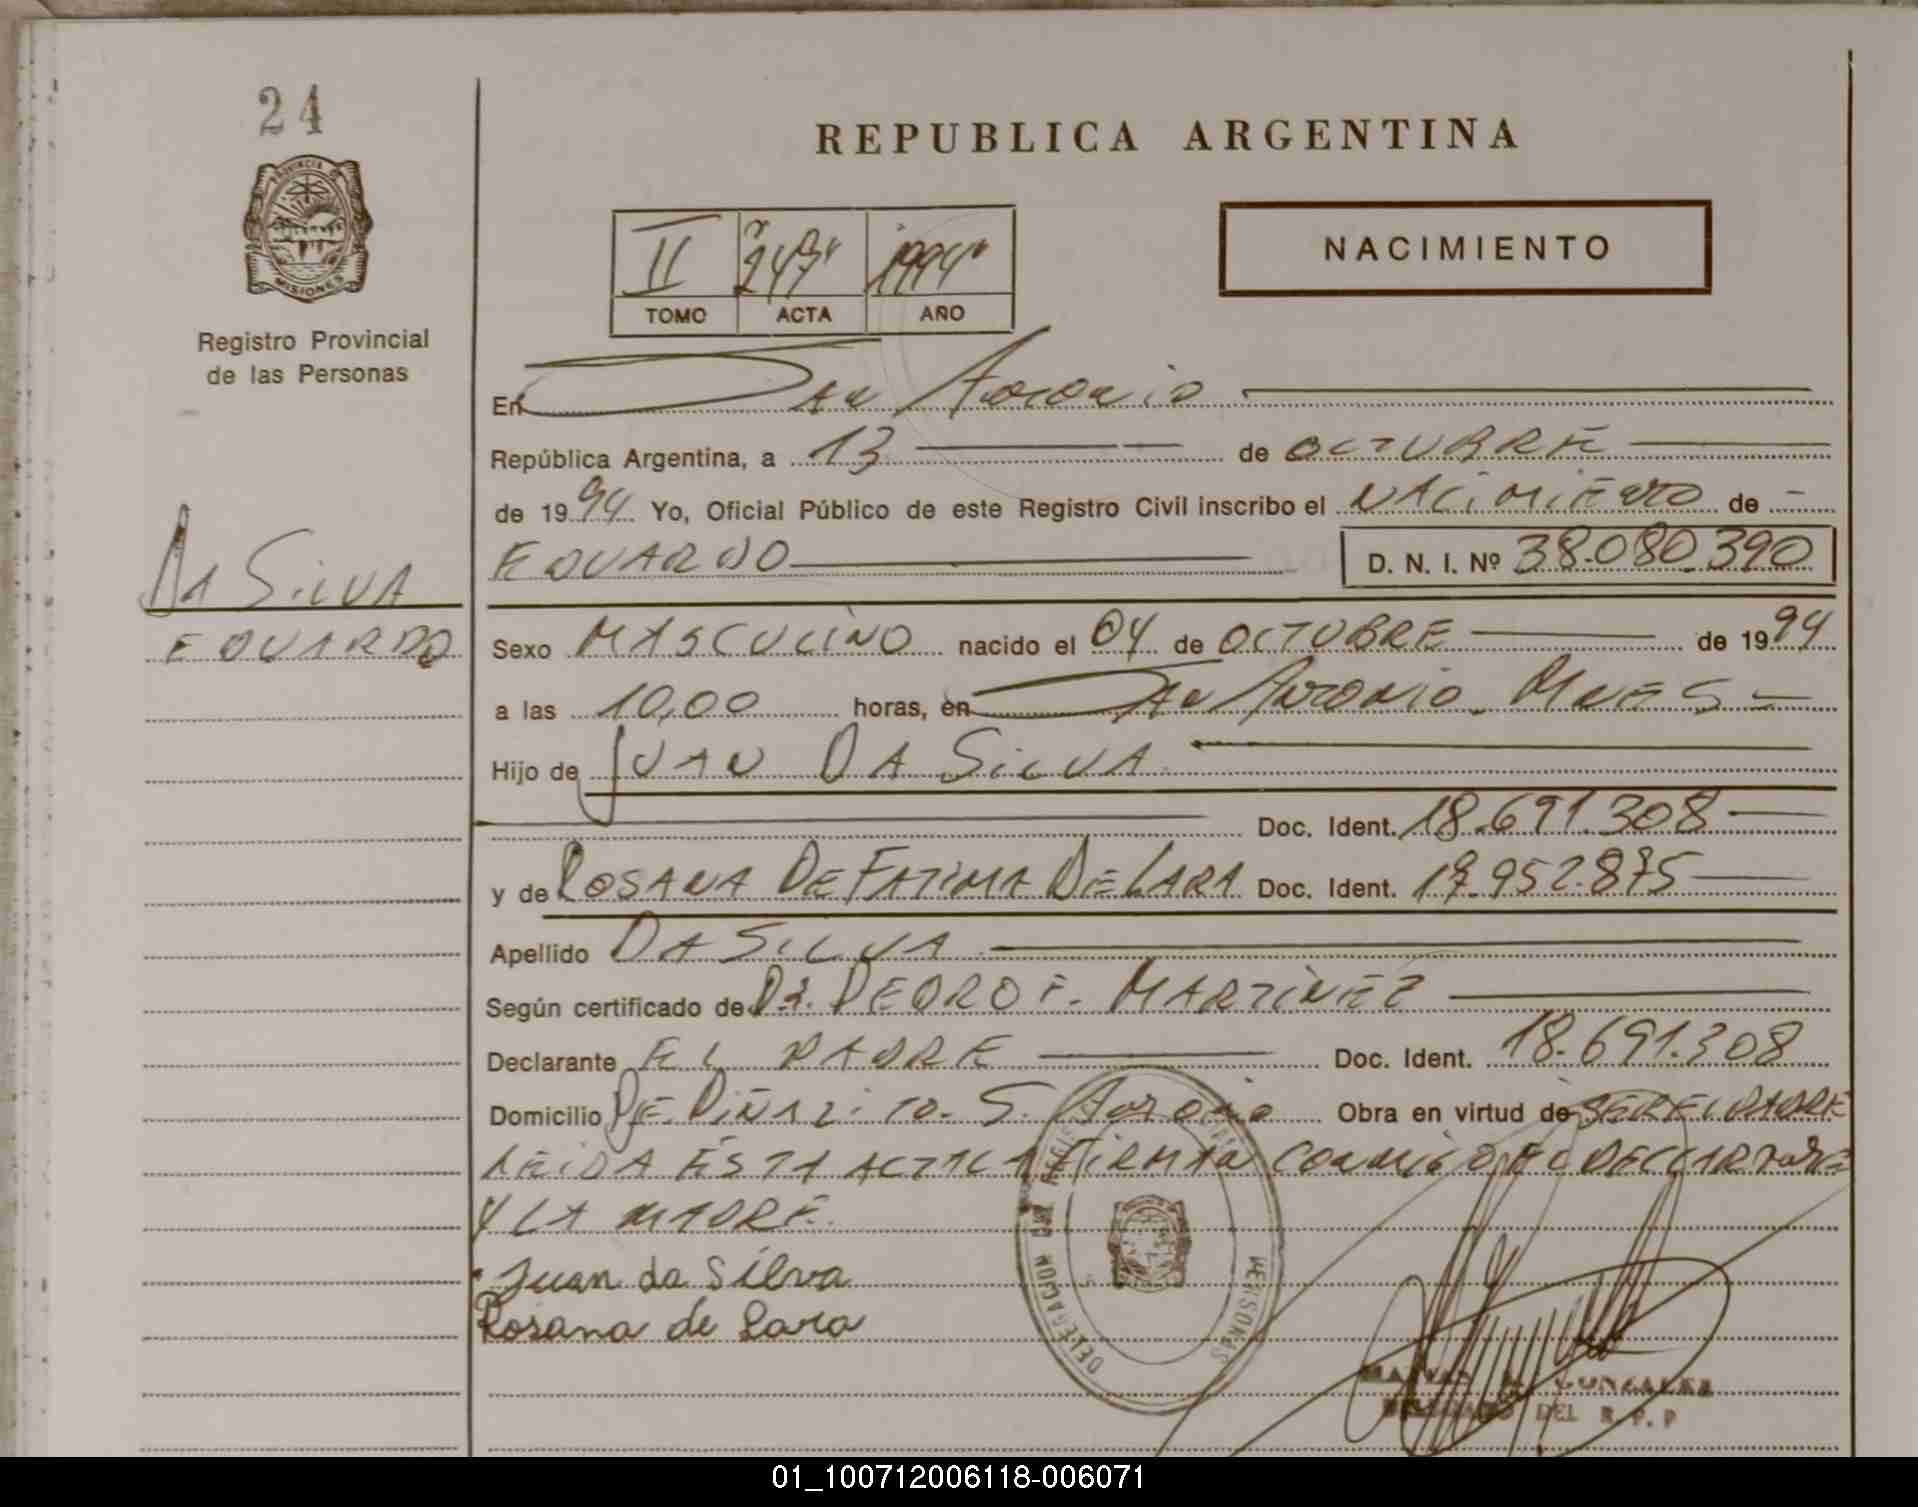 24
PROVINCIA DE
MISIONES
Registro Provincial
de las Personas
DA SILVA
EDUARDO
REPUBLICA ARGENTINA
II 247 1994
TOMO ACTA AÑO
NACIMIENTO
En San Antonio
República Argentina, a 13 de OCTUBRE
de 1994 Yo, Oficial Público de este Registro Civil inscribo el NACIMIENTO de
EDUARDO D. N. I. Nº 38.080.390
Sexo MASCULINO nacido el 04 de OCTUBRE de 1994
a las 10,00 horas, en San Antonio. Mnes
Hijo de JUAN DA SILVA
Doc. Ident. 18.691.308
y de ROSANA DE FATIMA DE LARA Doc. Ident. 17.952.875
Apellido DA SILVA
Según certificado de Dr. PEDRO F. MARTINEZ
Declarante EL PADRE Doc. Ident. 18.691.308
Domicilio Pje. Piñalito. S. Antonio Obra en virtud de SER EL PADRE
LEIDA ESTA ACTA LA FIRMAN CONMIGO EL DECLARANTE
Y LA MADRE.
Juan da Silva
Rosana de Lara
DELEGACION MISIONES
GONZALEZ
DELEGADO DEL R. P. P
01_100712006118-006071